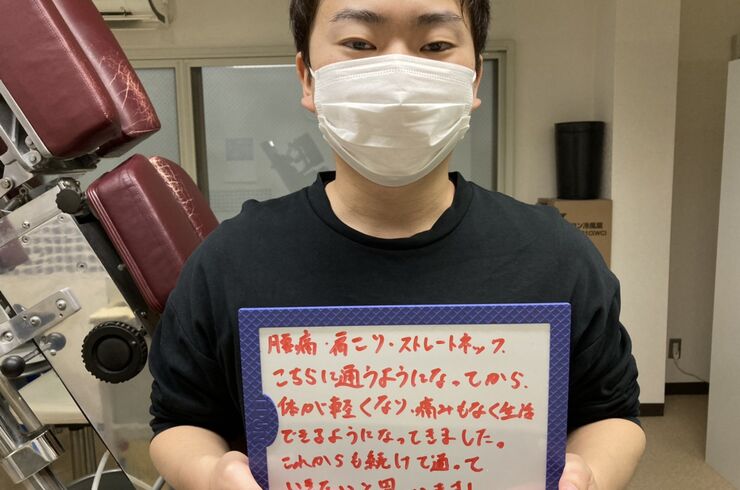 腰痛・肩こり・ストレートネック
こちらに通うようになってから、
体が軽くなり、痛みもなく生活
できるようになってきました。
これからも続けて通って
いきたいと思います